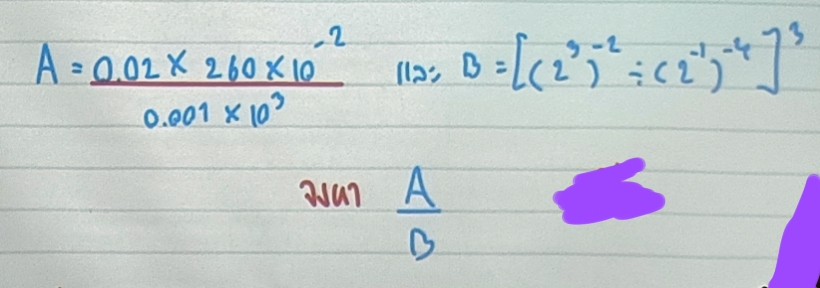 A = 0.02 × 260 × 10⁻² / 0.001 × 10³ และ B = [(2³)⁻² ÷ (2⁻¹)⁻⁴]³
จงหา A / B